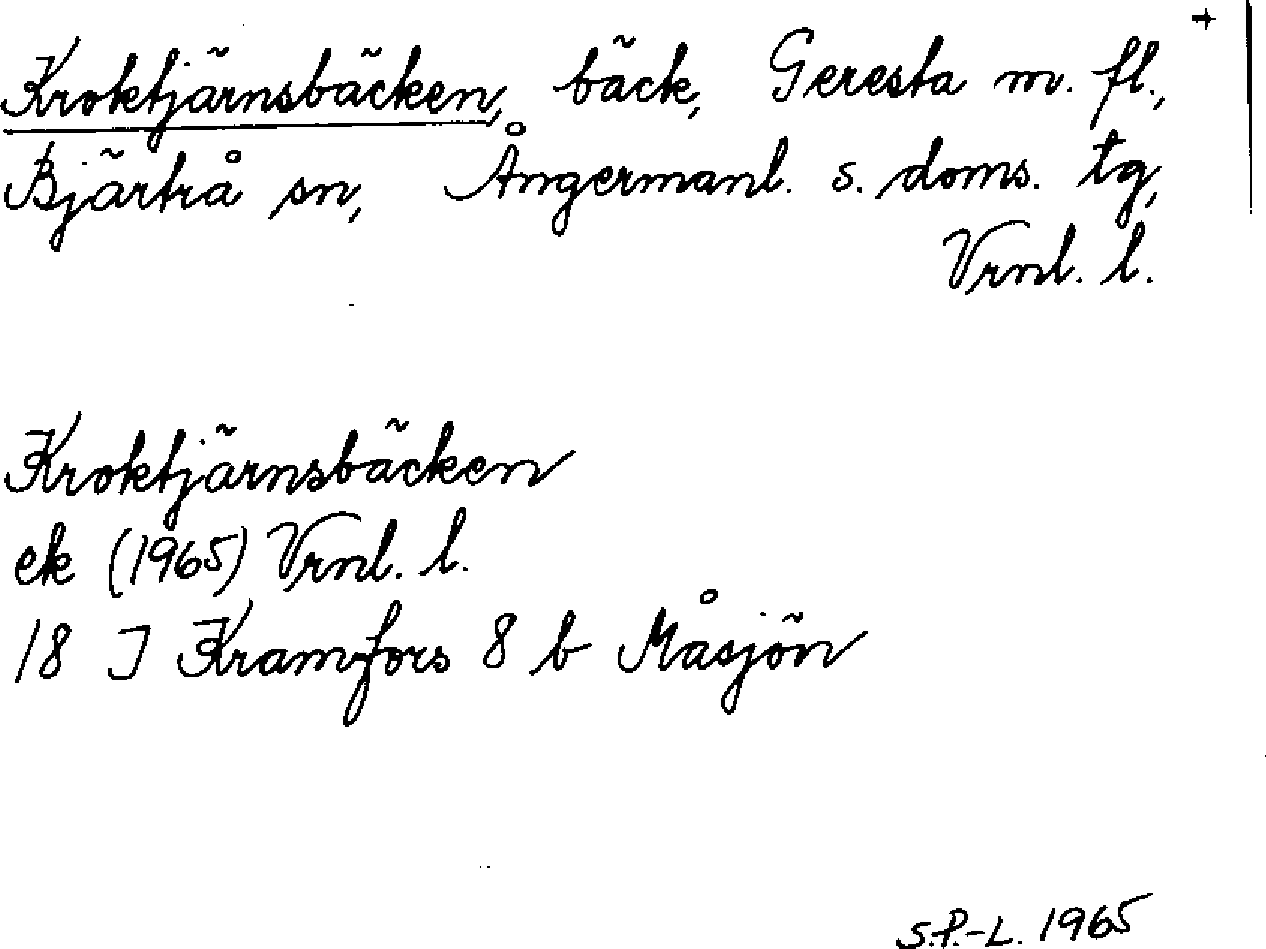 +
Kroktjärnsbäcken, bäck, Geresta m. fl.,
Bjärtrå sn, Ångermanl. s. doms. tg,
Vrnl. l.
Kroktjärnsbäcken
ek (1965) Vrnl. l.
18 I Kramfors 8 b Måsjön
S.P.-L. 1965